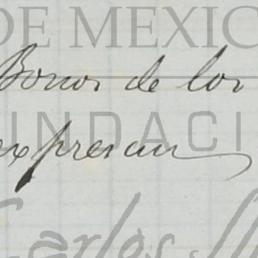 DE MEXICO
Bonos de los
FUNDACI
expresan
Carlos Sl